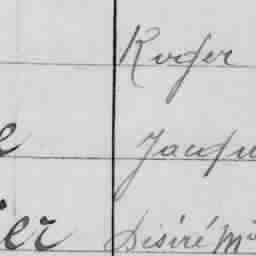 Roger
e Jacqu
ier Désiré M